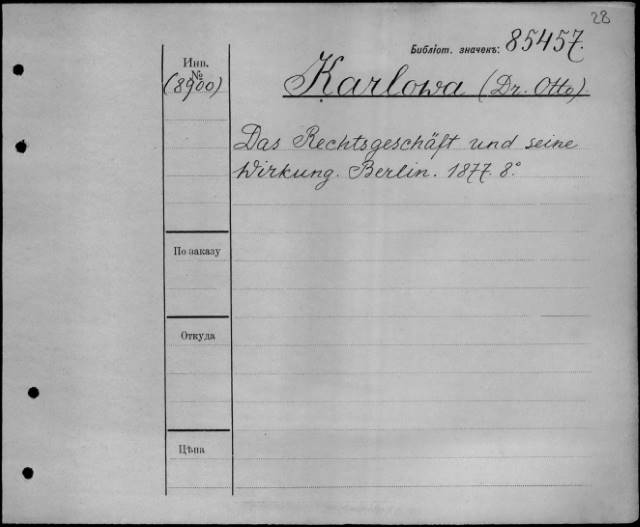 28
Библіот. значекъ: 85457.
Инв.
№
(8900)
Karlowa (Dr. Otto)
Das Rechtsgeschäft und seine
Wirkung. Berlin. 1877. 8°
По заказу
Откуда
Цѣна